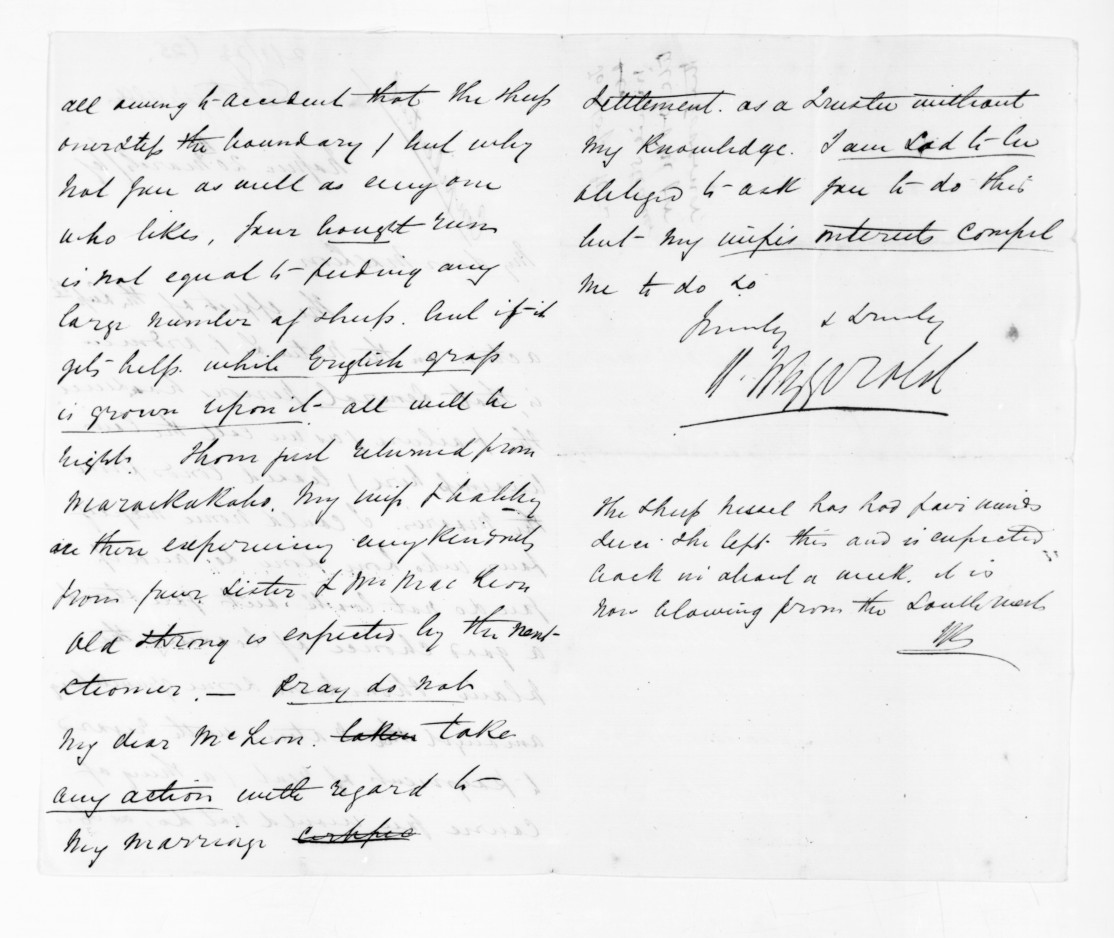 all owing to accident that the sheep
overstep the boundary / but why
not you as well as any one
who likes, your bought run
is not equal to feeding any
large number of sheep. but if it
gets help. while English grass
is grown upon it - all will be
right. I have just returned from
Maraekakaho. My wife & baby
are there experiencing any kindness
from your Sister & Mr MacLean
Old Strong is expected by the next
Steamer. — Pray do not
My dear McLean. taken take
any action with regard to
My marriage certific
Settlement. as a Trustee without
My Knowledge. I am sad to be
obliged to ask you to do this
but my wife's interests compel
me to do so
Yours & truly
Fitzgerald
The Sheep vessel has had fair winds
since she left this and is expected
back in about a week. it is
now blowing from the Southward